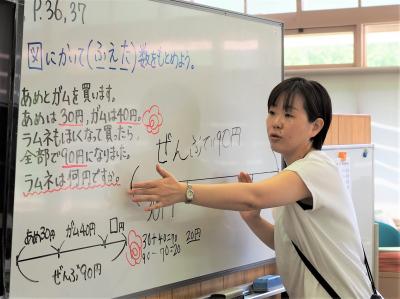 P.36,37
図にかいて(ふえた)数をもとめよう。
あめとガムを買います。
あめは30円、ガムは40円。
ラムネもほしくなって買ったら、
全部で90円になりました。
ラムネは何円ですか。
ぜんぶで90円
30円
あめ30円 ガム40円 □円
ぜんぶ90円
30+40=70
90-70=20
20円